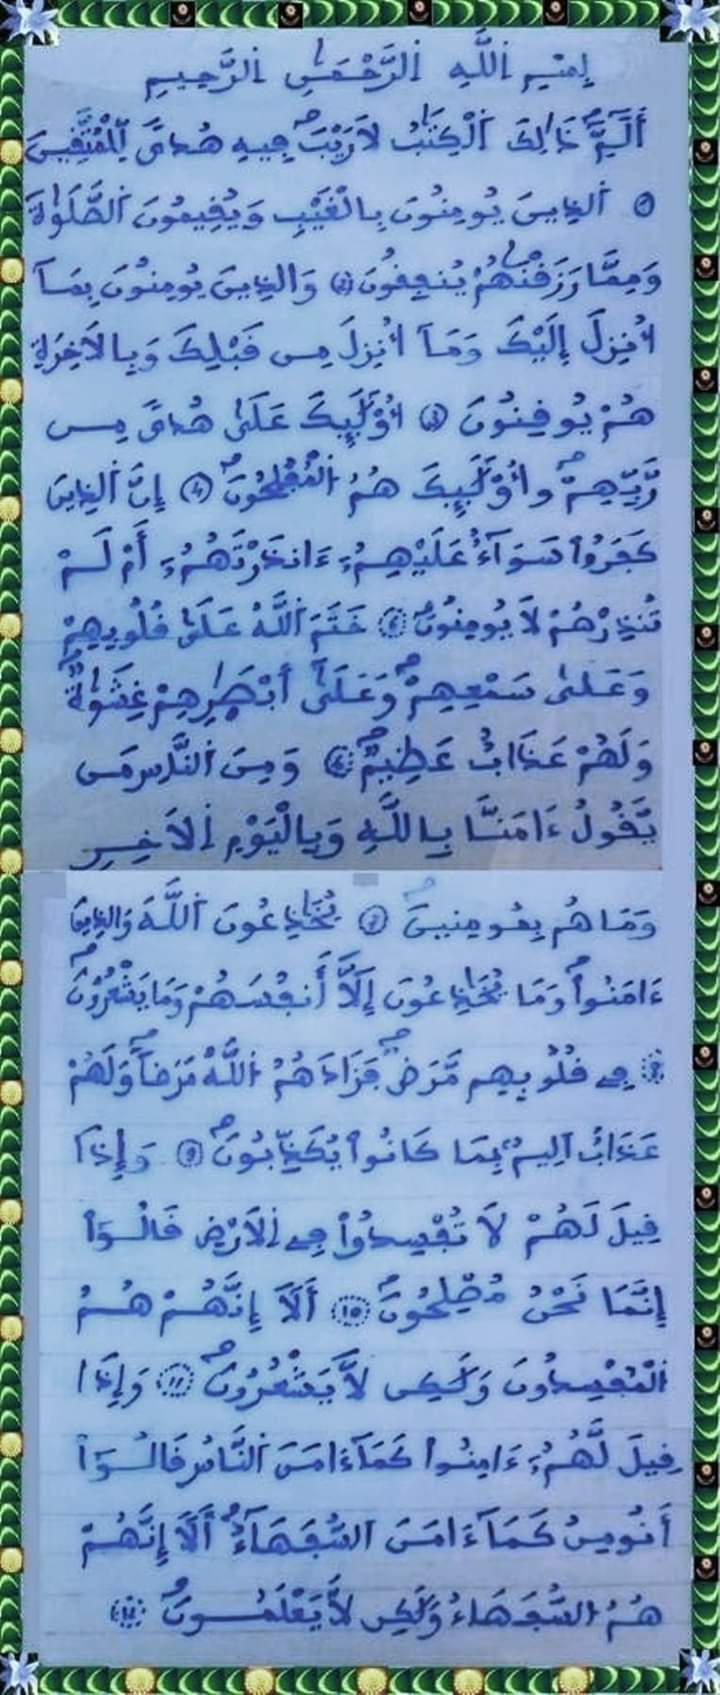 بِسْمِ اِ۬للَّهِ اِ۬لرَّحْمَٰنِ اِ۬لرَّحِيمِ
أَلَٓمِّٓۖ ذَٰلِكَ اَ۬لْكِتَٰبُ لَا رَيْبَۖ فِيهِ هُدىٗ لِّلْمُتَّقِينَ
① اَ۬لذِينَ يُومِنُونَ بِالْغَيْبِ وَيُقِيمُونَ اَ۬لصَّلَوٰةَ
وَمِمَّا رَزَقْنَٰهُمْ يُنفِقُونَ ② وَالذِينَ يُومِنُونَ بِمَآ
أُنزِلَ إِلَيْكَ وَمَآ أُنزِلَ مِن قَبْلِكَ وَبِالَاخِرَةِ
هُمْ يُوقِنُونَ ③ أُوْلَٰٓئِكَ عَلَىٰ هُدىٗ مِّن
رَّبِّهِمْۖ وَأُوْلَٰٓئِكَ هُمُ اُ۬لْمُفْلِحُونَۖ ④ إِنَّ اَ۬لذِينَ
كَفَرُواْ سَوَآءٌ عَلَيْهِمُۥٓ ءَآنذَرْتَهُمُۥٓ أَمْ لَمْ
تُنذِرْهُمْ لَا يُومِنُونَۖ ⑤ خَتَمَ اَ۬للَّهُ عَلَىٰ قُلُوبِهِمْ
وَعَلَىٰ سَمْعِهِمْۖ وَعَلَىٰٓ أَبْصَٰرِهِمْ غِشَٰوَةٞۖ
وَلَهُمْ عَذَابٌ عَظِيمٞۖ ⑥ وَمِنَ اَ۬لنَّاسِ مَن
يَّقُولُ ءَامَنَّا بِاللَّهِ وَبِالْيَوْمِ اِ۬لَاخِرِ
وَمَا هُم بِمُومِنِينَۖ ⑦ يُخَٰدِعُونَ اَ۬للَّهَ وَالذِينَ
ءَامَنُواْۖ وَمَا يُخَٰدِعُونَ إِلَّآ أَنفُسَهُمْ وَمَا يَشْعُرُونَۖ
⑧ فِے قُلُوبِهِم مَّرَضٞۖ فَزَادَهُمُ اُ۬للَّهُ مَرَضاٗۖ وَلَهُمْ
عَذَابٌ اَلِيمُۢ بِمَا كَانُواْ يُكَذِّبُونَۖ ⑨ وَإِذَا
قِيلَ لَهُمْ لَا تُفْسِدُواْ فِے اِ۬لَارْضِ قَالُوٓاْ
إِنَّمَا نَحْنُ مُصْلِحُونَۖ ⑩ أَلَآ إِنَّهُمْ هُمُ
اُ۬لْمُفْسِدُونَ وَلَٰكِن لَّا يَشْعُرُونَۖ ⑪ وَإِذَا
قِيلَ لَهُمُۥٓ ءَامِنُواْ كَمَآ ءَامَنَ اَ۬لنَّاسُ قَالُوٓاْ
أَنُومِنُ كَمَآ ءَامَنَ اَ۬لسُّفَهَآءُۖ أَلَآ إِنَّهُمْ
هُمُ اُ۬لسُّفَهَآءُ وَلَٰكِن لَّا يَعْلَمُونَۖ ⑫